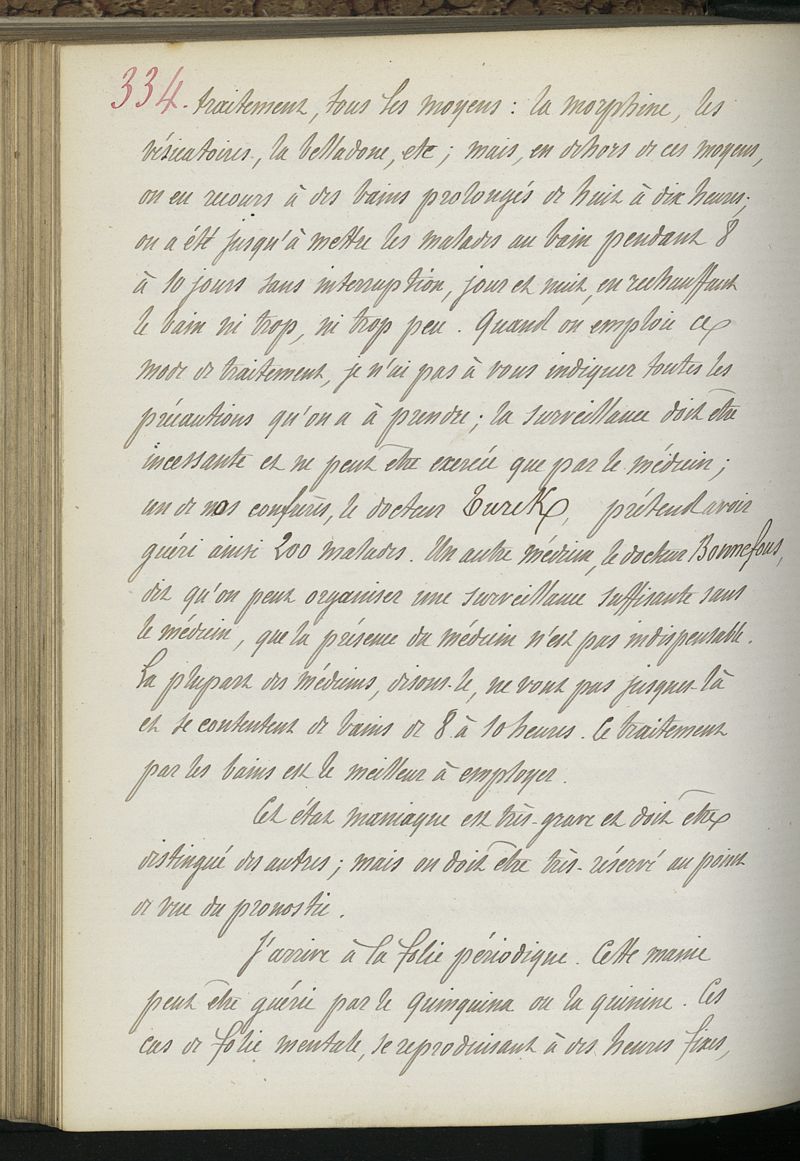 334. traitement, tous les moyens : la morphine, les
vésicatoires, la belladone, etc ; mais, en dehors de ces moyens,
on eu recours à des bains prolongés de huit à dix heures ;
on a été jusqu'à mettre les malades au bain pendant 8
à 10 jours sans interruption, jour et nuit, en réchauffant
le bain ni trop, ni trop peu. Quand on emploie ce
mode de traitement, je n'ai pas à vous indiquer toutes les
précautions qu'on a à prendre ; la surveillance doit être
incessante et ne peut être exercée que par le médecin ;
un de nos confrères, le docteur Turck, prétend avoir
guéri ainsi 200 malades. Un autre médecin, le docteur Bonnefous,
dit qu'on peut organiser une surveillance suffisante sans
le médecin, que la présence du médecin n'est pas indispensable.
La plupart des médecins, disons-le, ne vont pas jusques-là
et se contentent de bains de 8 à 10 heures. Ce traitement
par les bains est le meilleur à employer.
Cet état maniaque est très-grave et doit être
distingué des autres ; mais on doit être très-réservé au point
de vue du pronostic.
J'arrive à la folie périodique. Cette manie
peut être guérie par le quinquina ou la quinine. Ces
cas de folie mentale, se reproduisant à des heures fixes,